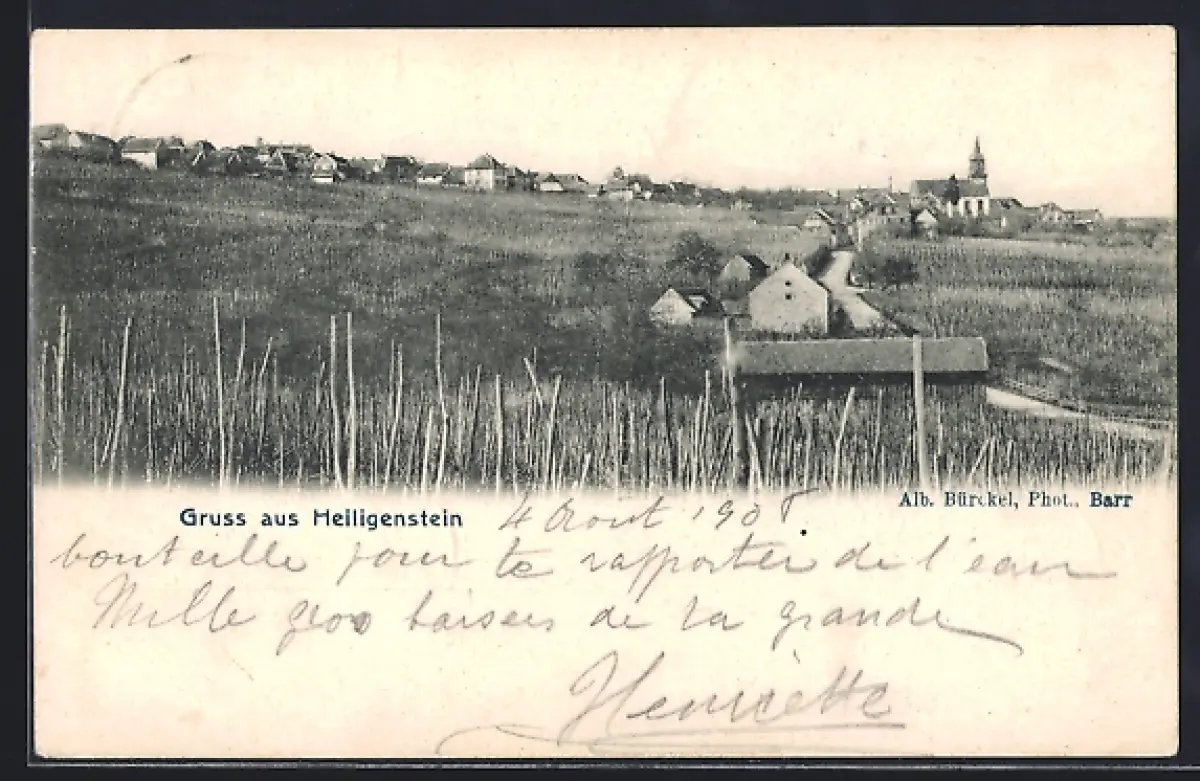 Gruss aus Heiligenstein
Alb. Bürckel, Phot., Barr
4 Août 1908
bouteille pour te rapporter de l'eau
Mille gros baisers de ta grande
Henriette